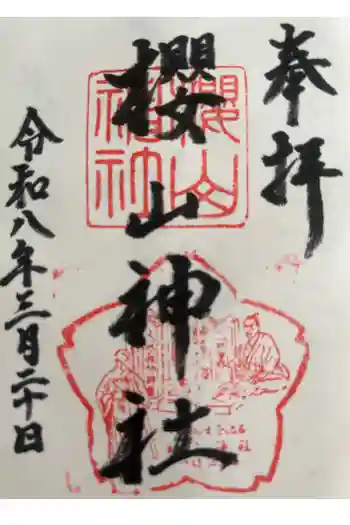 奉拝
櫻山神社
櫻山神社
令和八年三月二十日